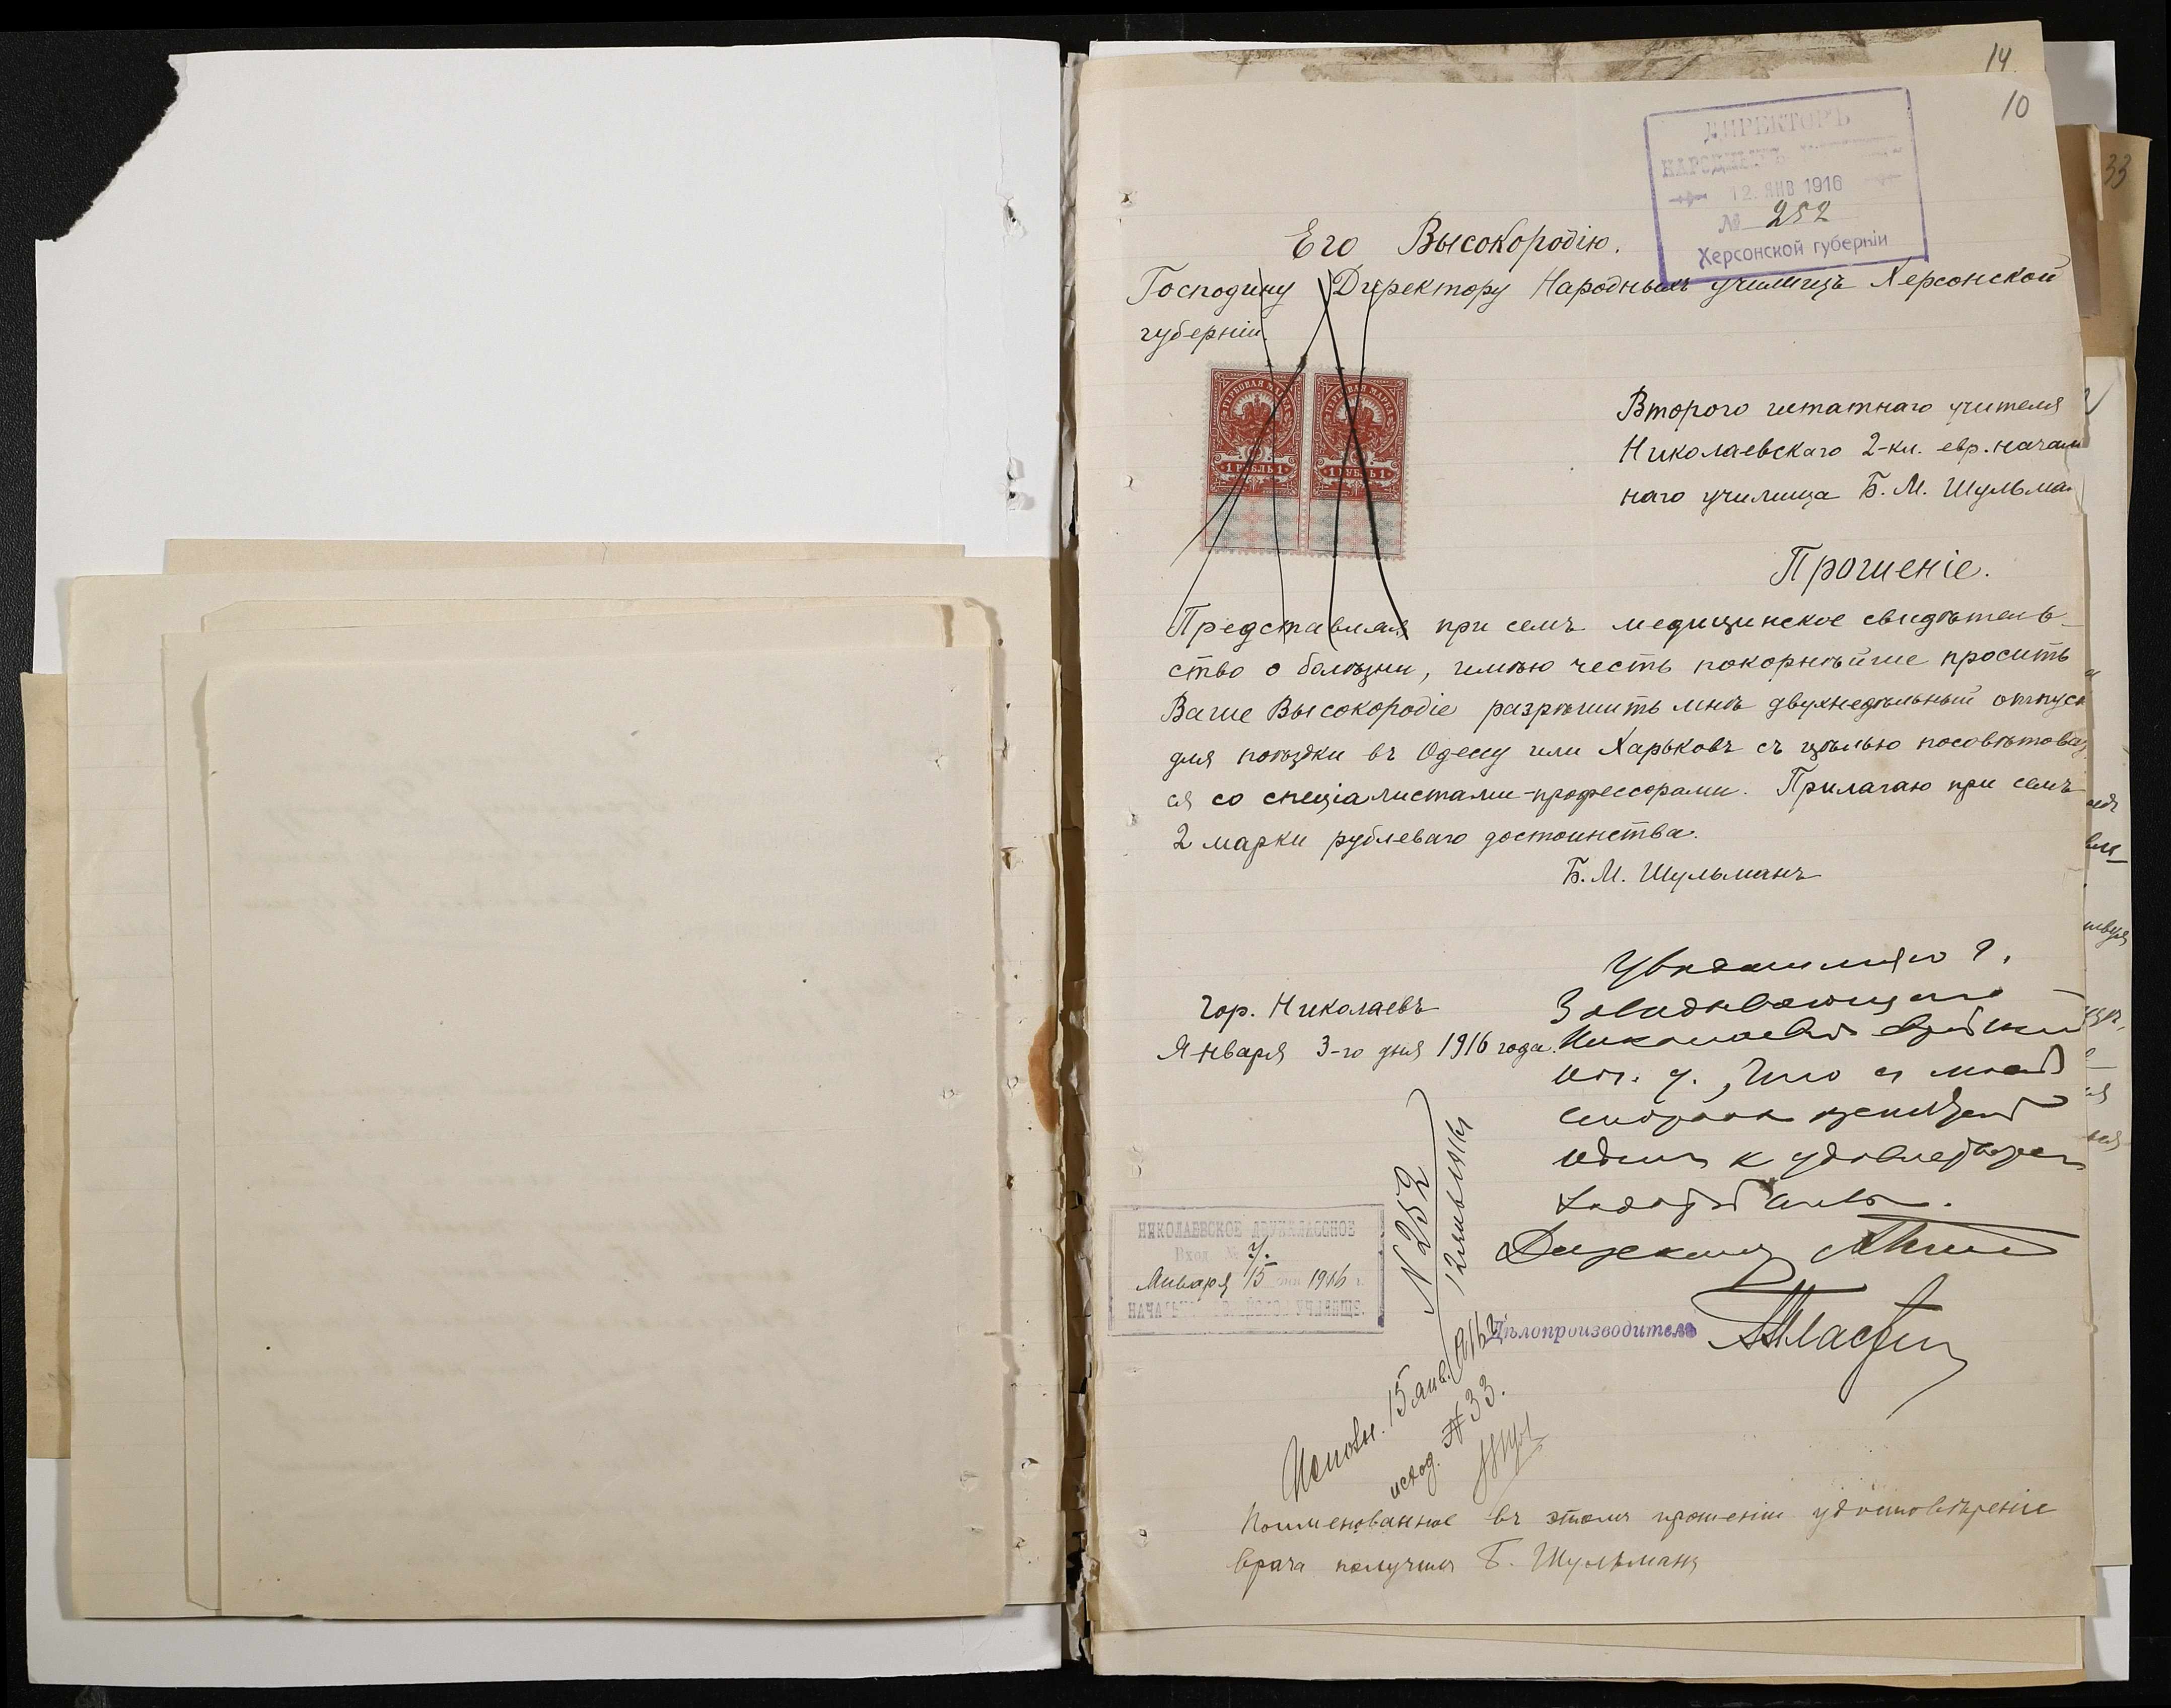 14
10
33
ДИРЕКТОРЪ
НАРОДНЫХЪ
12. ЯНВ 1916
№ 252
Херсонской губерніи
Его Высокородію.
Господину Директору Народныхъ училищъ Херсонской
губерніи.
ГЕРБОВАЯ МАРКА ГЕРБОВАЯ МАРКА
1 РУБЛЬ 1 1 РУБЛЬ 1
Второго штатнаго учителя
Николаевскаго 2-кл. евр. началь
наго училища Б. М. Шульма
Прошеніе.
Представляя при семъ медицинское свидѣтель-
ство о болѣзни, имѣю честь покорнѣйше просить
Ваше Высокородіе разрѣшить мнѣ двухнедѣльный отпуск
для поѣздки въ Одессу или Харьковъ съ цѣлью посовѣтова
ся со спеціалистами-профессорами. Прилагаю при семъ
2 марки рублеваго достоинства.
Б. М. Шульманъ
Гор. Николаевъ
Января 3-го дня 1916 года.
Увѣдомляю г.
Завѣдывающаго
что съ моей
стороны
къ удовлетворен
Директоръ
Дѣлопроизводитель
N 252
12 янв 1916
НИКОЛАЕВСКОЕ ДВУХКЛАССНОЕ
Вход. № 7.
Января 15 дня 1916 г.
НАЧАЛЬН УЧИЛИЩЕ.
Исполн. 15 янв. 1916 г.
исход. № 33.
Поименованное въ этомъ прошеніи удостовѣреніе
врача получилъ Б. Шульманъ